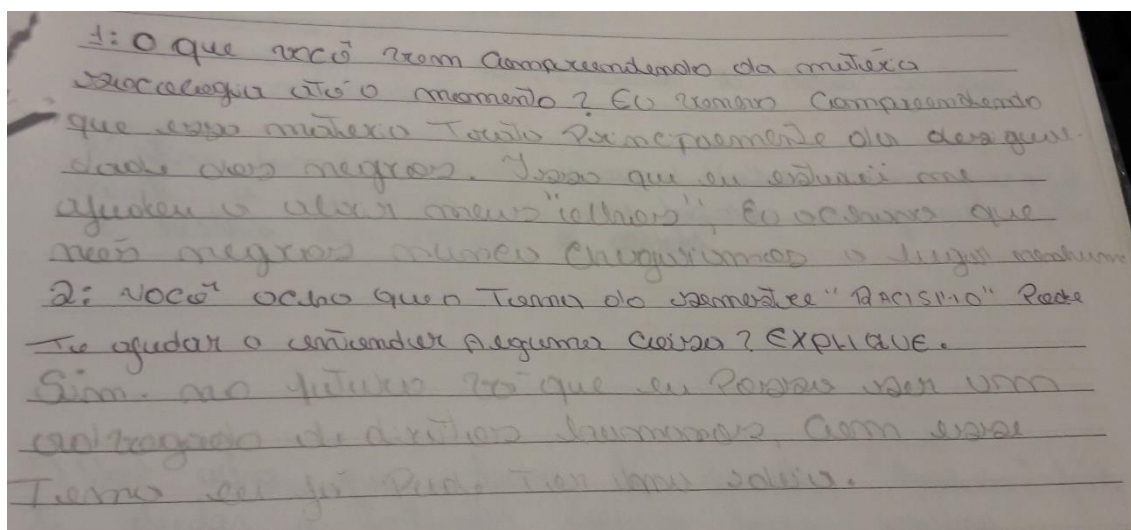 1: O que você vem compreendendo da matéria
sociologia até o momento? Eu venho compreendendo
que essa materia Trata Principalmente da desigual-
dade dos negros. Isso que eu estudei me
ajudou a abrir meus "olhos". Eu achava que
nós negros nunca chegariamos a lugar nenhum
2: você acha que o Tema do semestre "RACISMO" Pode
Te ajudar a entender Alguma coisa? EXPLIQUE.
Sim. no futuro que eu Possa ser um
advogado de direitos humanos, com esse
Tema eu já Pude Ter uma